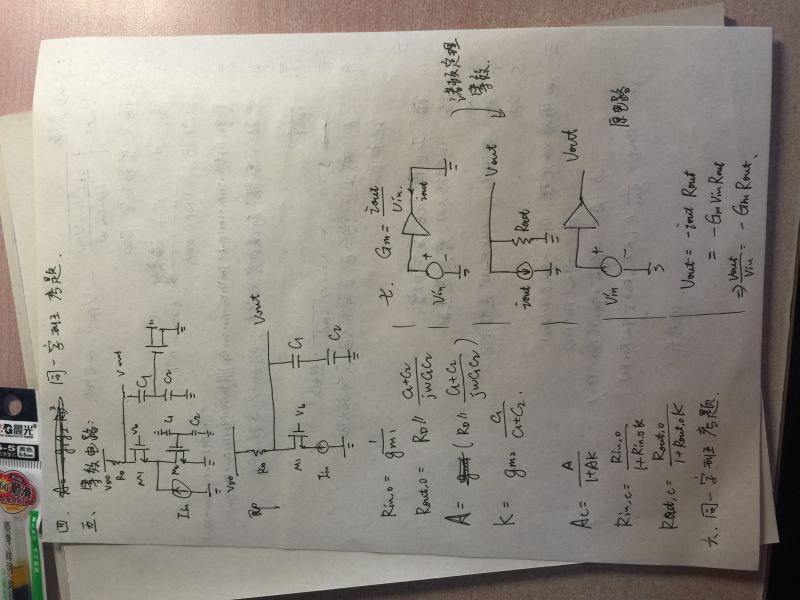 四. 同一字班考题.
五、等效电路:
VDD
RD
Vout
M1
Vb
C1
C2
Iin
M2
C1
C2
即
VDD
RD
Vout
M1
Vb
C1
Iin
C2
Rin,o = 1/gm1
Rout,o = RD // (C1+C2)/(jwC1C2)
A = (RD // (C1+C2)/(jwC1C2))
K = gm2 C1/(C1+C2).
Ac = A/(1+AK)
Rin,c = Rin,o/(1+Rin,oK)
Rout,c = Rout,o/(1+Rout,oK)
六、同一字班考题.
七. Gm = iout/Vin.
Vin
+
-
iout
诺顿定理
等效.
Vout
iout
Rout
Vout
Vin
+
-
原电路
Vout = -iout Rout
= -Gm Vin Rout
⇒ Vout/Vin = -Gm Rout.